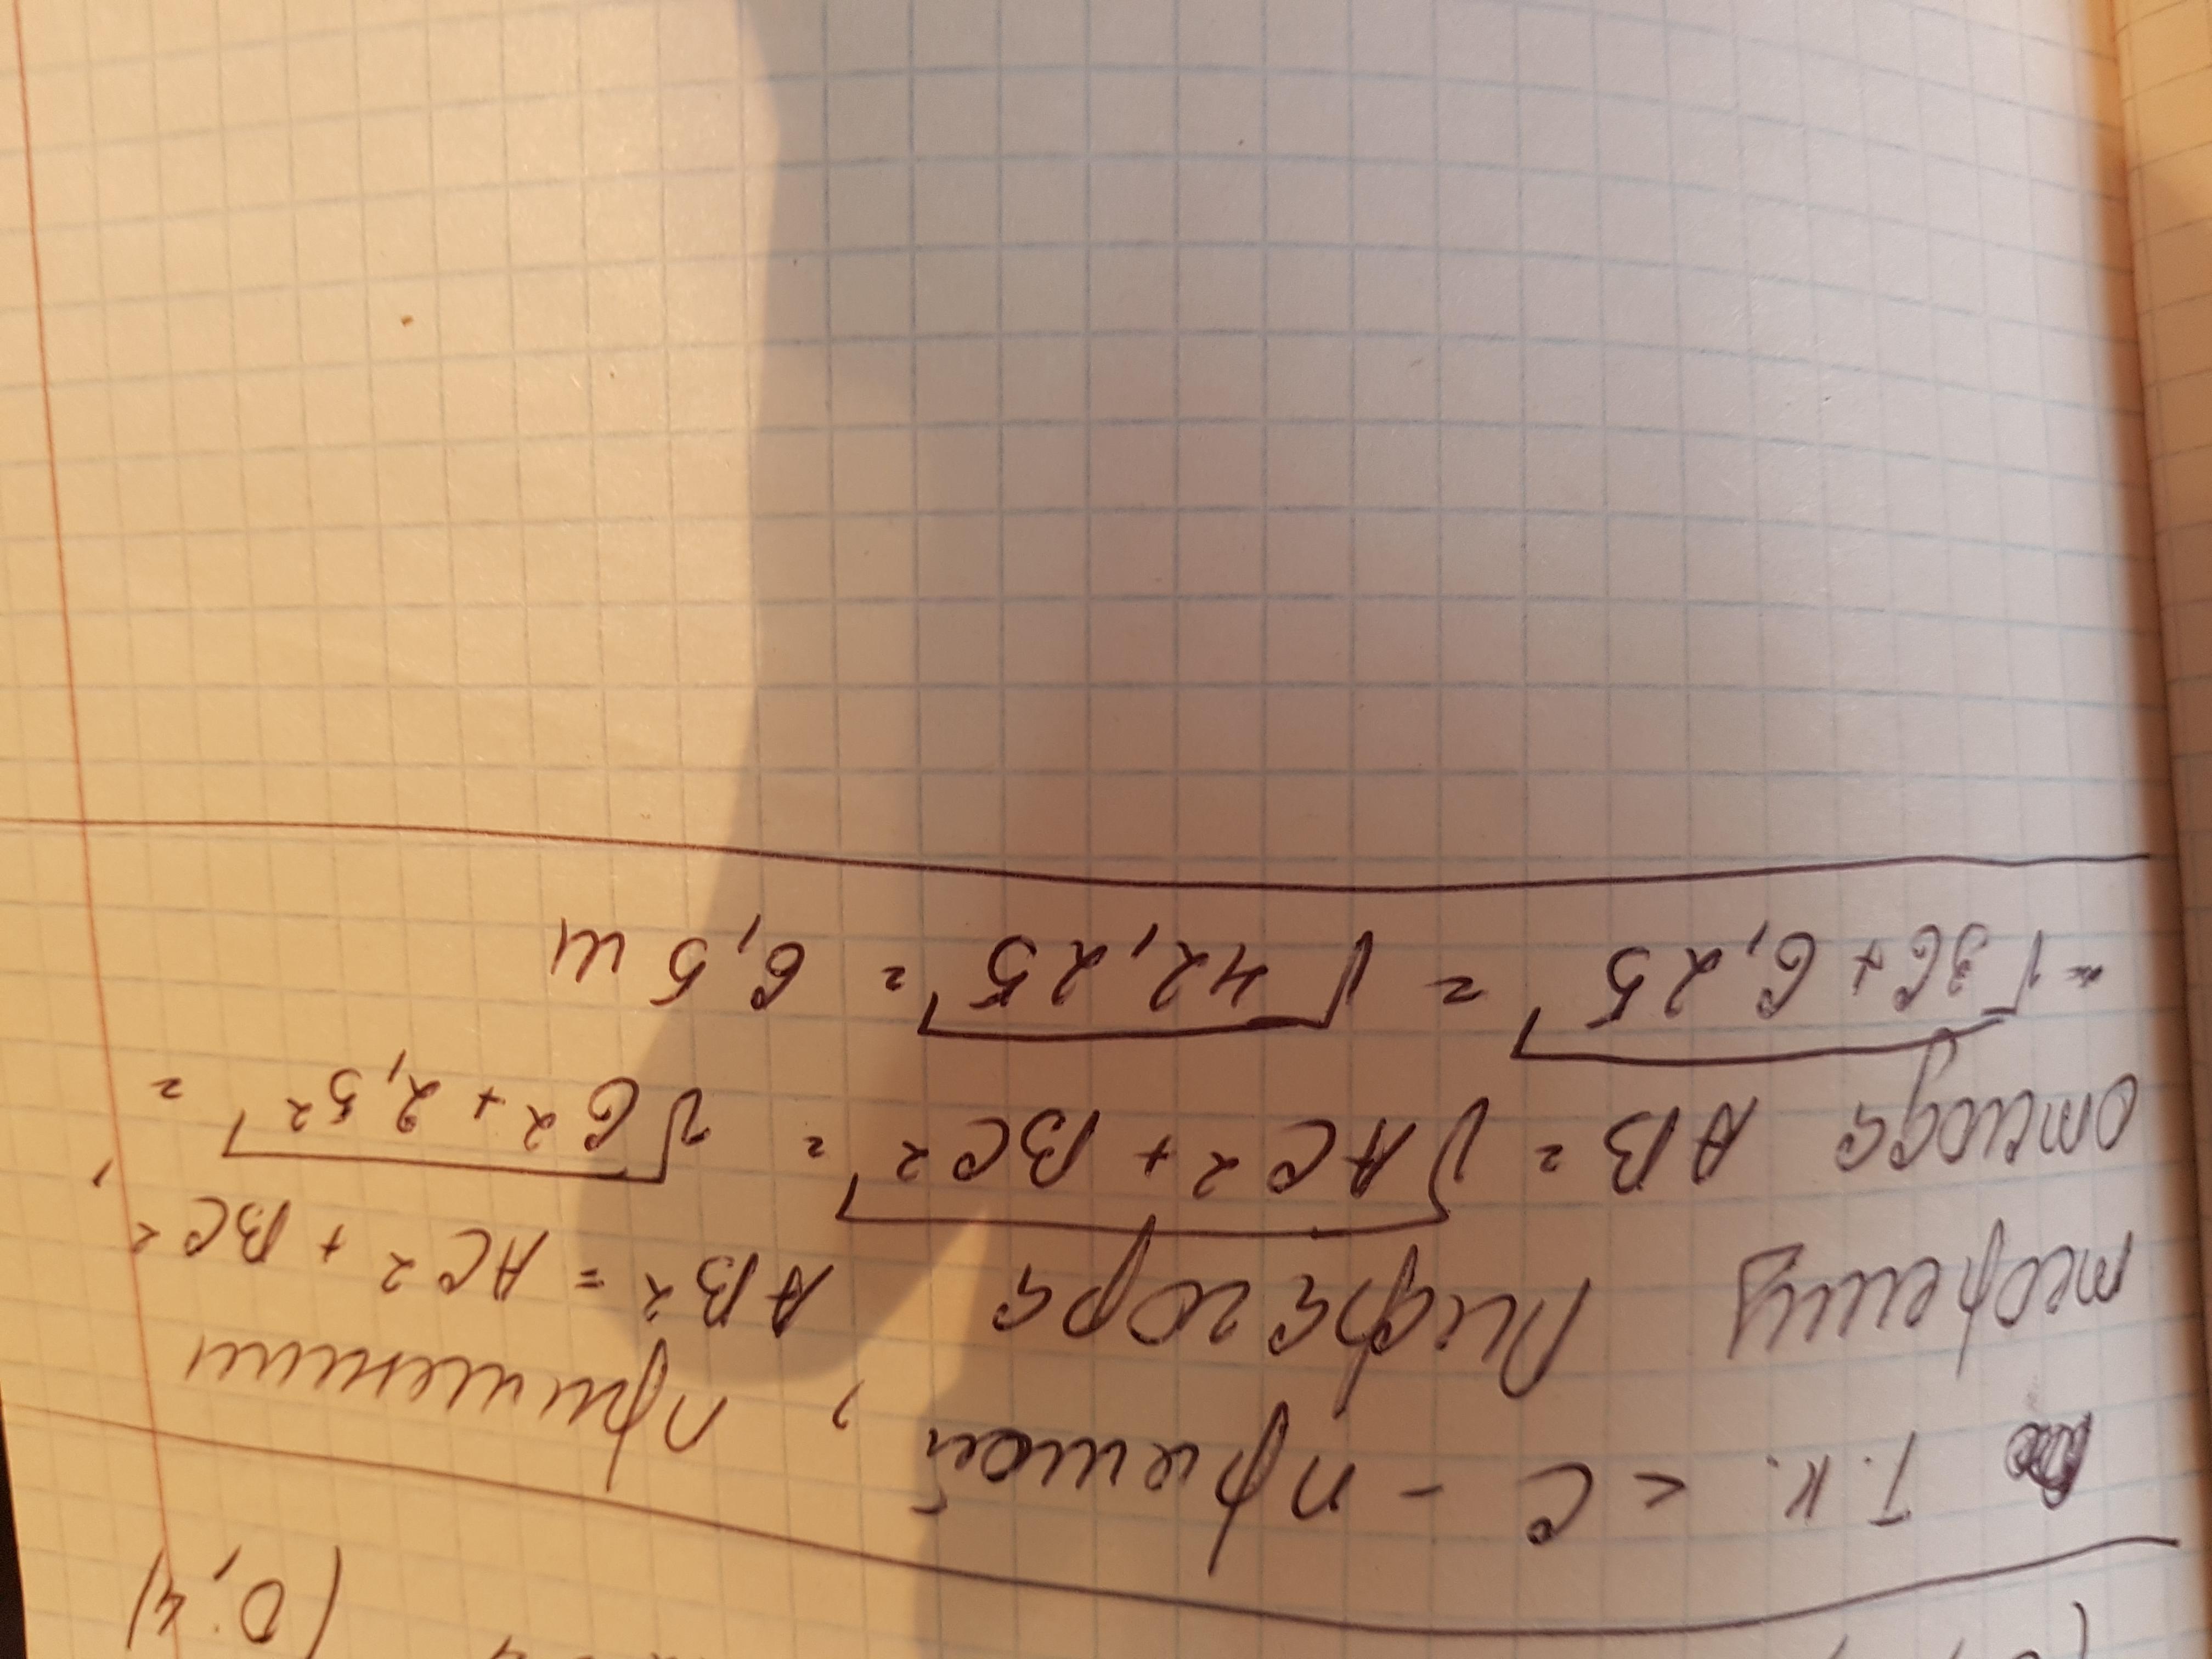 (0; 4)
Т.к. <C - прямой, применим
теорему Пифагора AB² = AC² + BC²,
отсюда AB = √AC² + BC² = √6² + 2,5² =
= √36 + 6,25 = √42,25 = 6,5 м